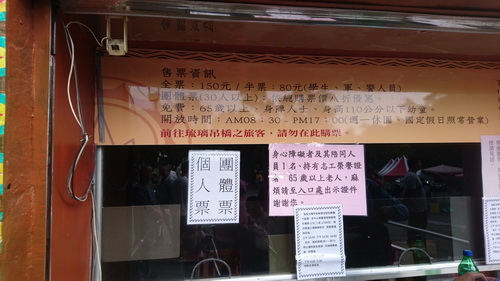 售票資訊
全票：150元 / 半票：80元(學生、軍、警人員)
團體票(30人以上)：依總購票價八折優惠。
免費：65歲以上、身障人士、身高110公分以下幼童。
開放時間：AM08：30 - PM17：00(週一休園、國定假日照常營業)
前往琉璃吊橋之旅客，請勿在此購票。
團體票
個人票
身心障礙者及其陪同人
員1名、持有志工榮譽證
者、65歲以上老人，麻
煩請至入口處出示證件
謝謝您。